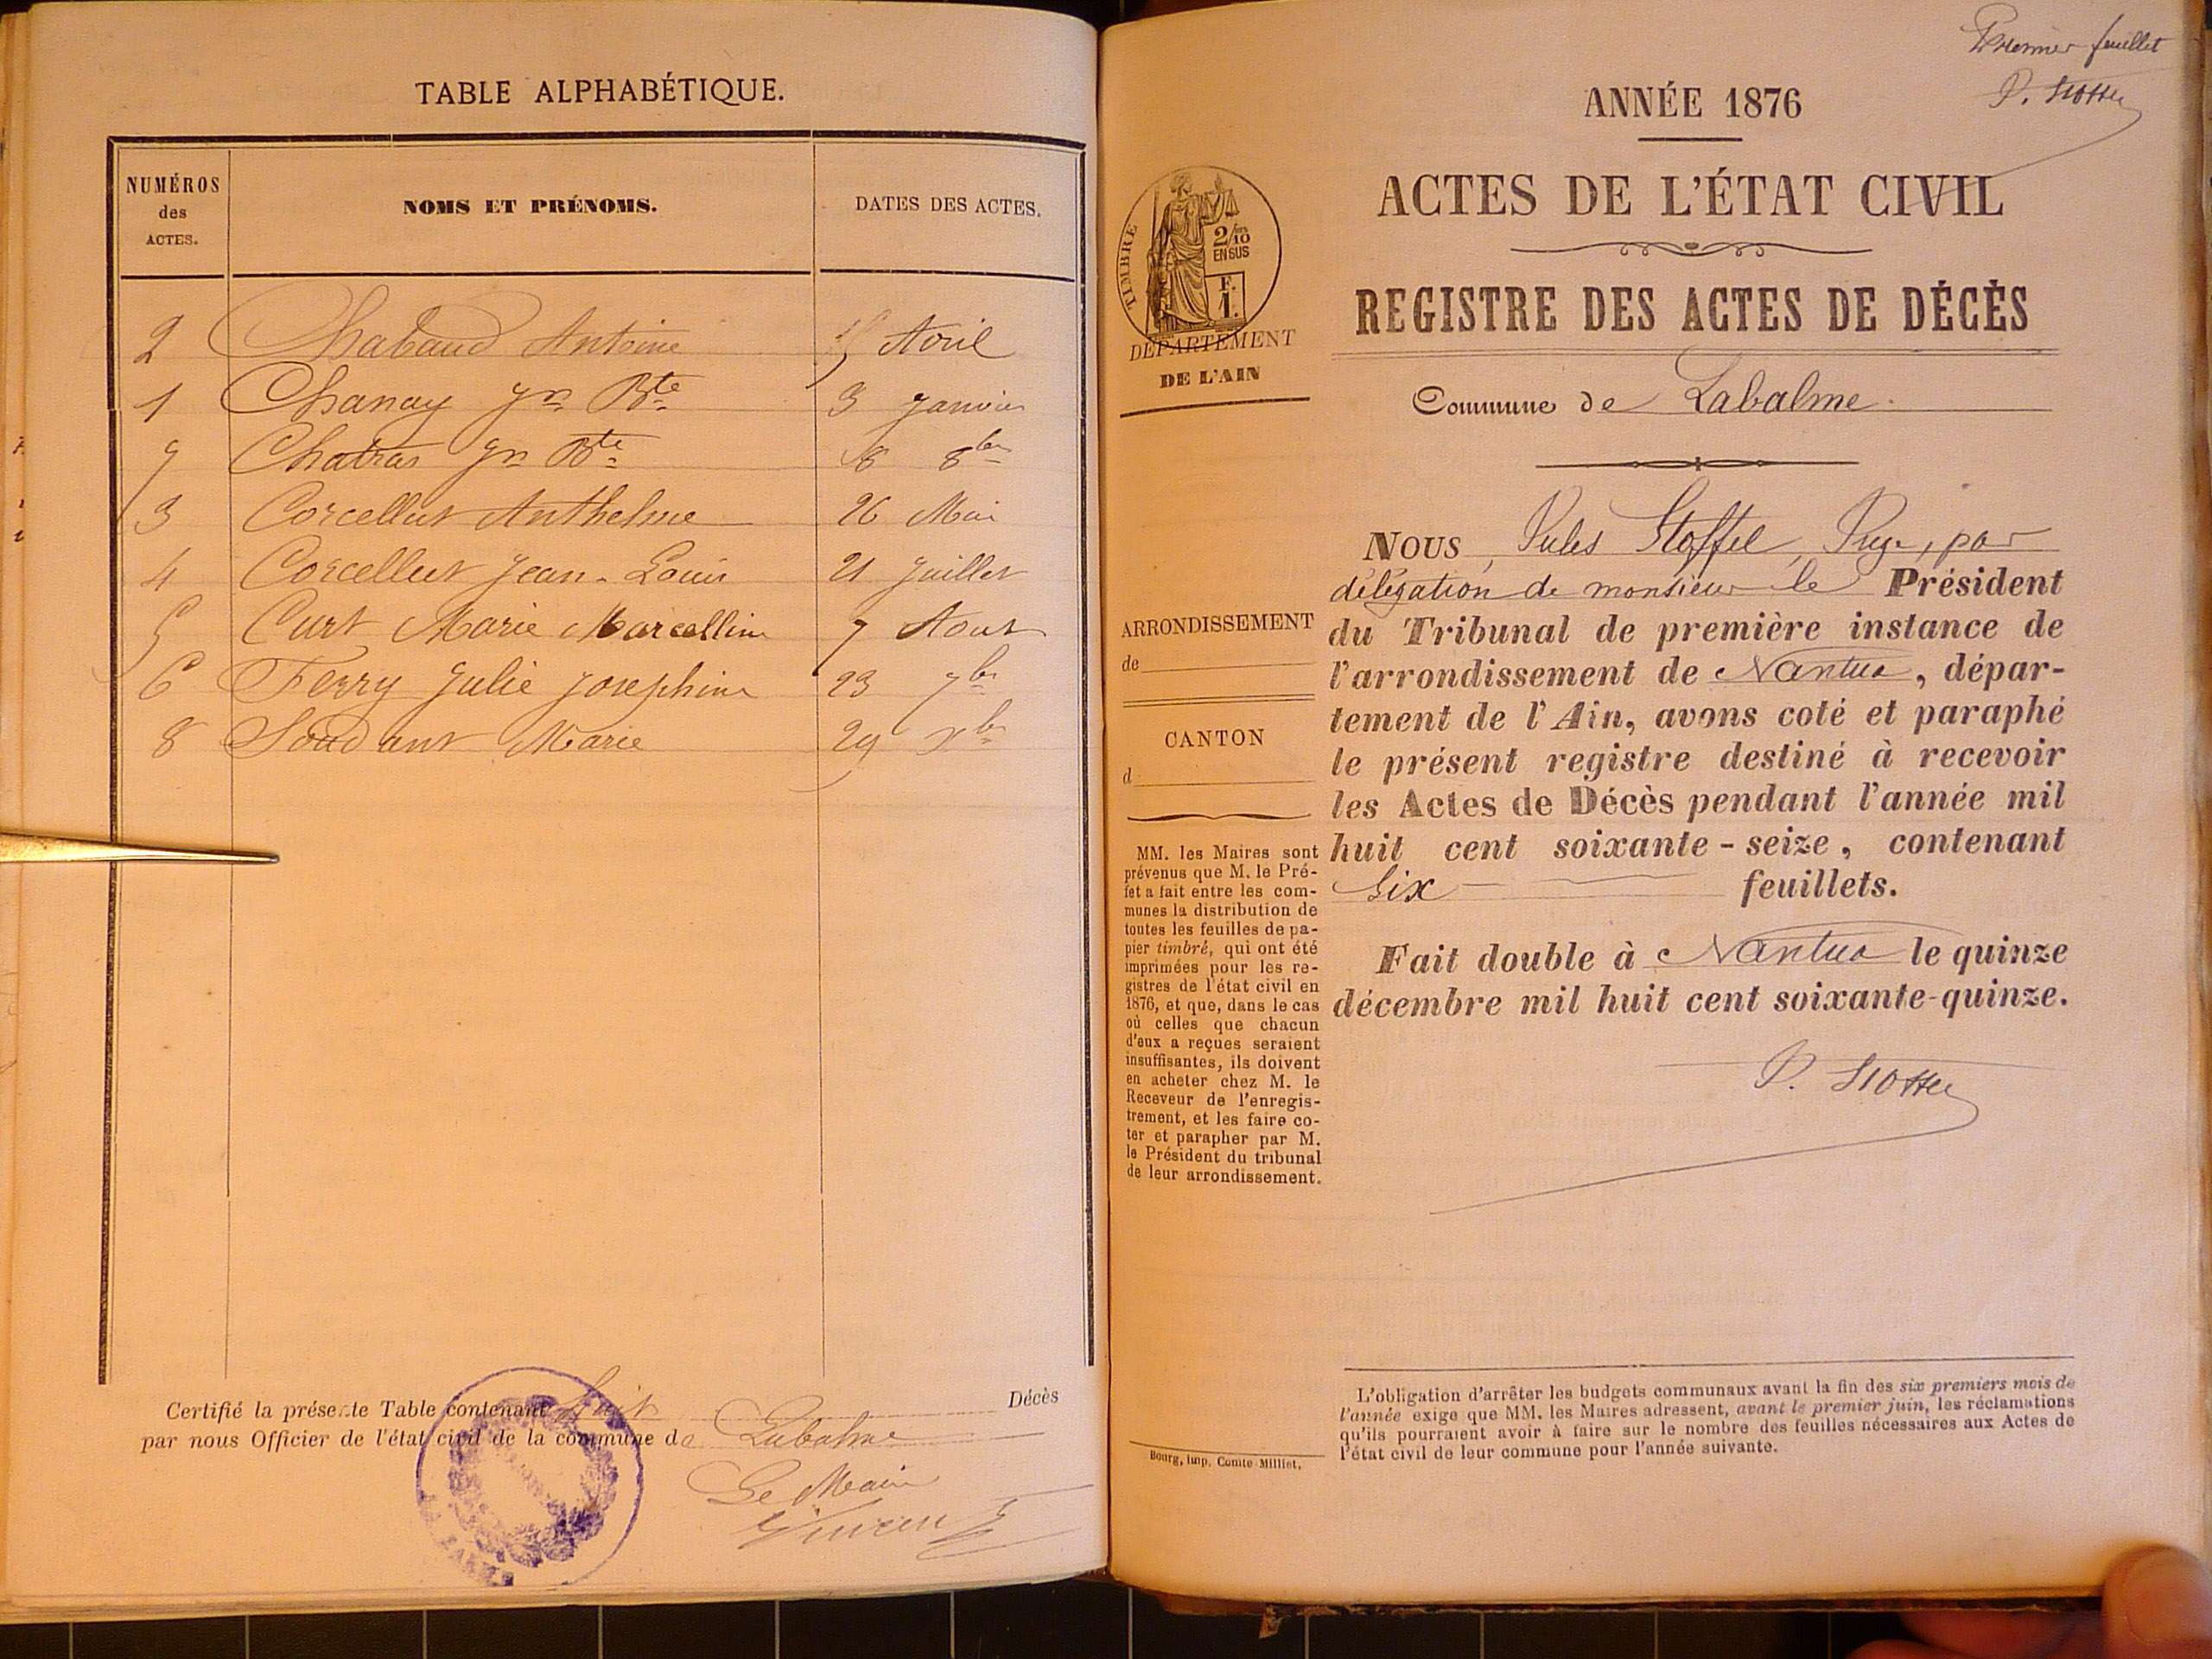 TABLE ALPHABÉTIQUE.
NUMÉROS des ACTES.
NOMS ET PRÉNOMS.
DATES DES ACTES.
2 Chabaud Antoine Avril
1 Chanay Jn Bte 3 Janvier
7 Chatras Jn Bte 8bre
3 Corcellut Anthelme 26 Mai
4 Corcellut Jean-Louis 21 Juillet
5 Curt Marie Marcelline 7 Aout
6 Ferry Julie Josephine 23 7bre
8 Soudant Marie 29 Xbre
Certifié la présente Table contenant huit Décès
par nous Officier de l'état civil de la commune de Labalme
Le Maire
Premier feuillet
ANNÉE 1876
ACTES DE L'ÉTAT CIVIL
REGISTRE DES ACTES DE DÉCÈS
Commune de Labalme.
TIMBRE
2/10
EN SUS
F.
1.
DÉPARTEMENT
DE L'AIN
ARRONDISSEMENT
de
CANTON
d
MM. les Maires sont
prévenus que M. le Pré-
fet a fait entre les com-
munes la distribution de
toutes les feuilles de pa-
pier timbré, qui ont été
imprimées pour les re-
gistres de l'état civil en
1876, et que, dans le cas
où celles que chacun
d'eux a reçues seraient
insuffisantes, ils doivent
en acheter chez M. le
Receveur de l'enregis-
trement, et les faire co-
ter et parapher par M.
le Président du tribunal
de leur arrondissement.
Bourg, imp. Comte-Milliet.
NOUS, Jules Stoffel, Juge, par
délégation de monsieur le Président
du Tribunal de première instance de
l'arrondissement de Nantua, dépar-
tement de l'Ain, avons coté et paraphé
le présent registre destiné à recevoir
les Actes de Décès pendant l'année mil
huit cent soixante-seize, contenant
six feuillets.
Fait double à Nantua le quinze
décembre mil huit cent soixante-quinze.
L'obligation d'arrêter les budgets communaux avant la fin des six premiers mois de
l'année exige que MM. les Maires adressent, avant le premier juin, les réclamations
qu'ils pourraient avoir à faire sur le nombre des feuilles nécessaires aux Actes de
l'état civil de leur commune pour l'année suivante.